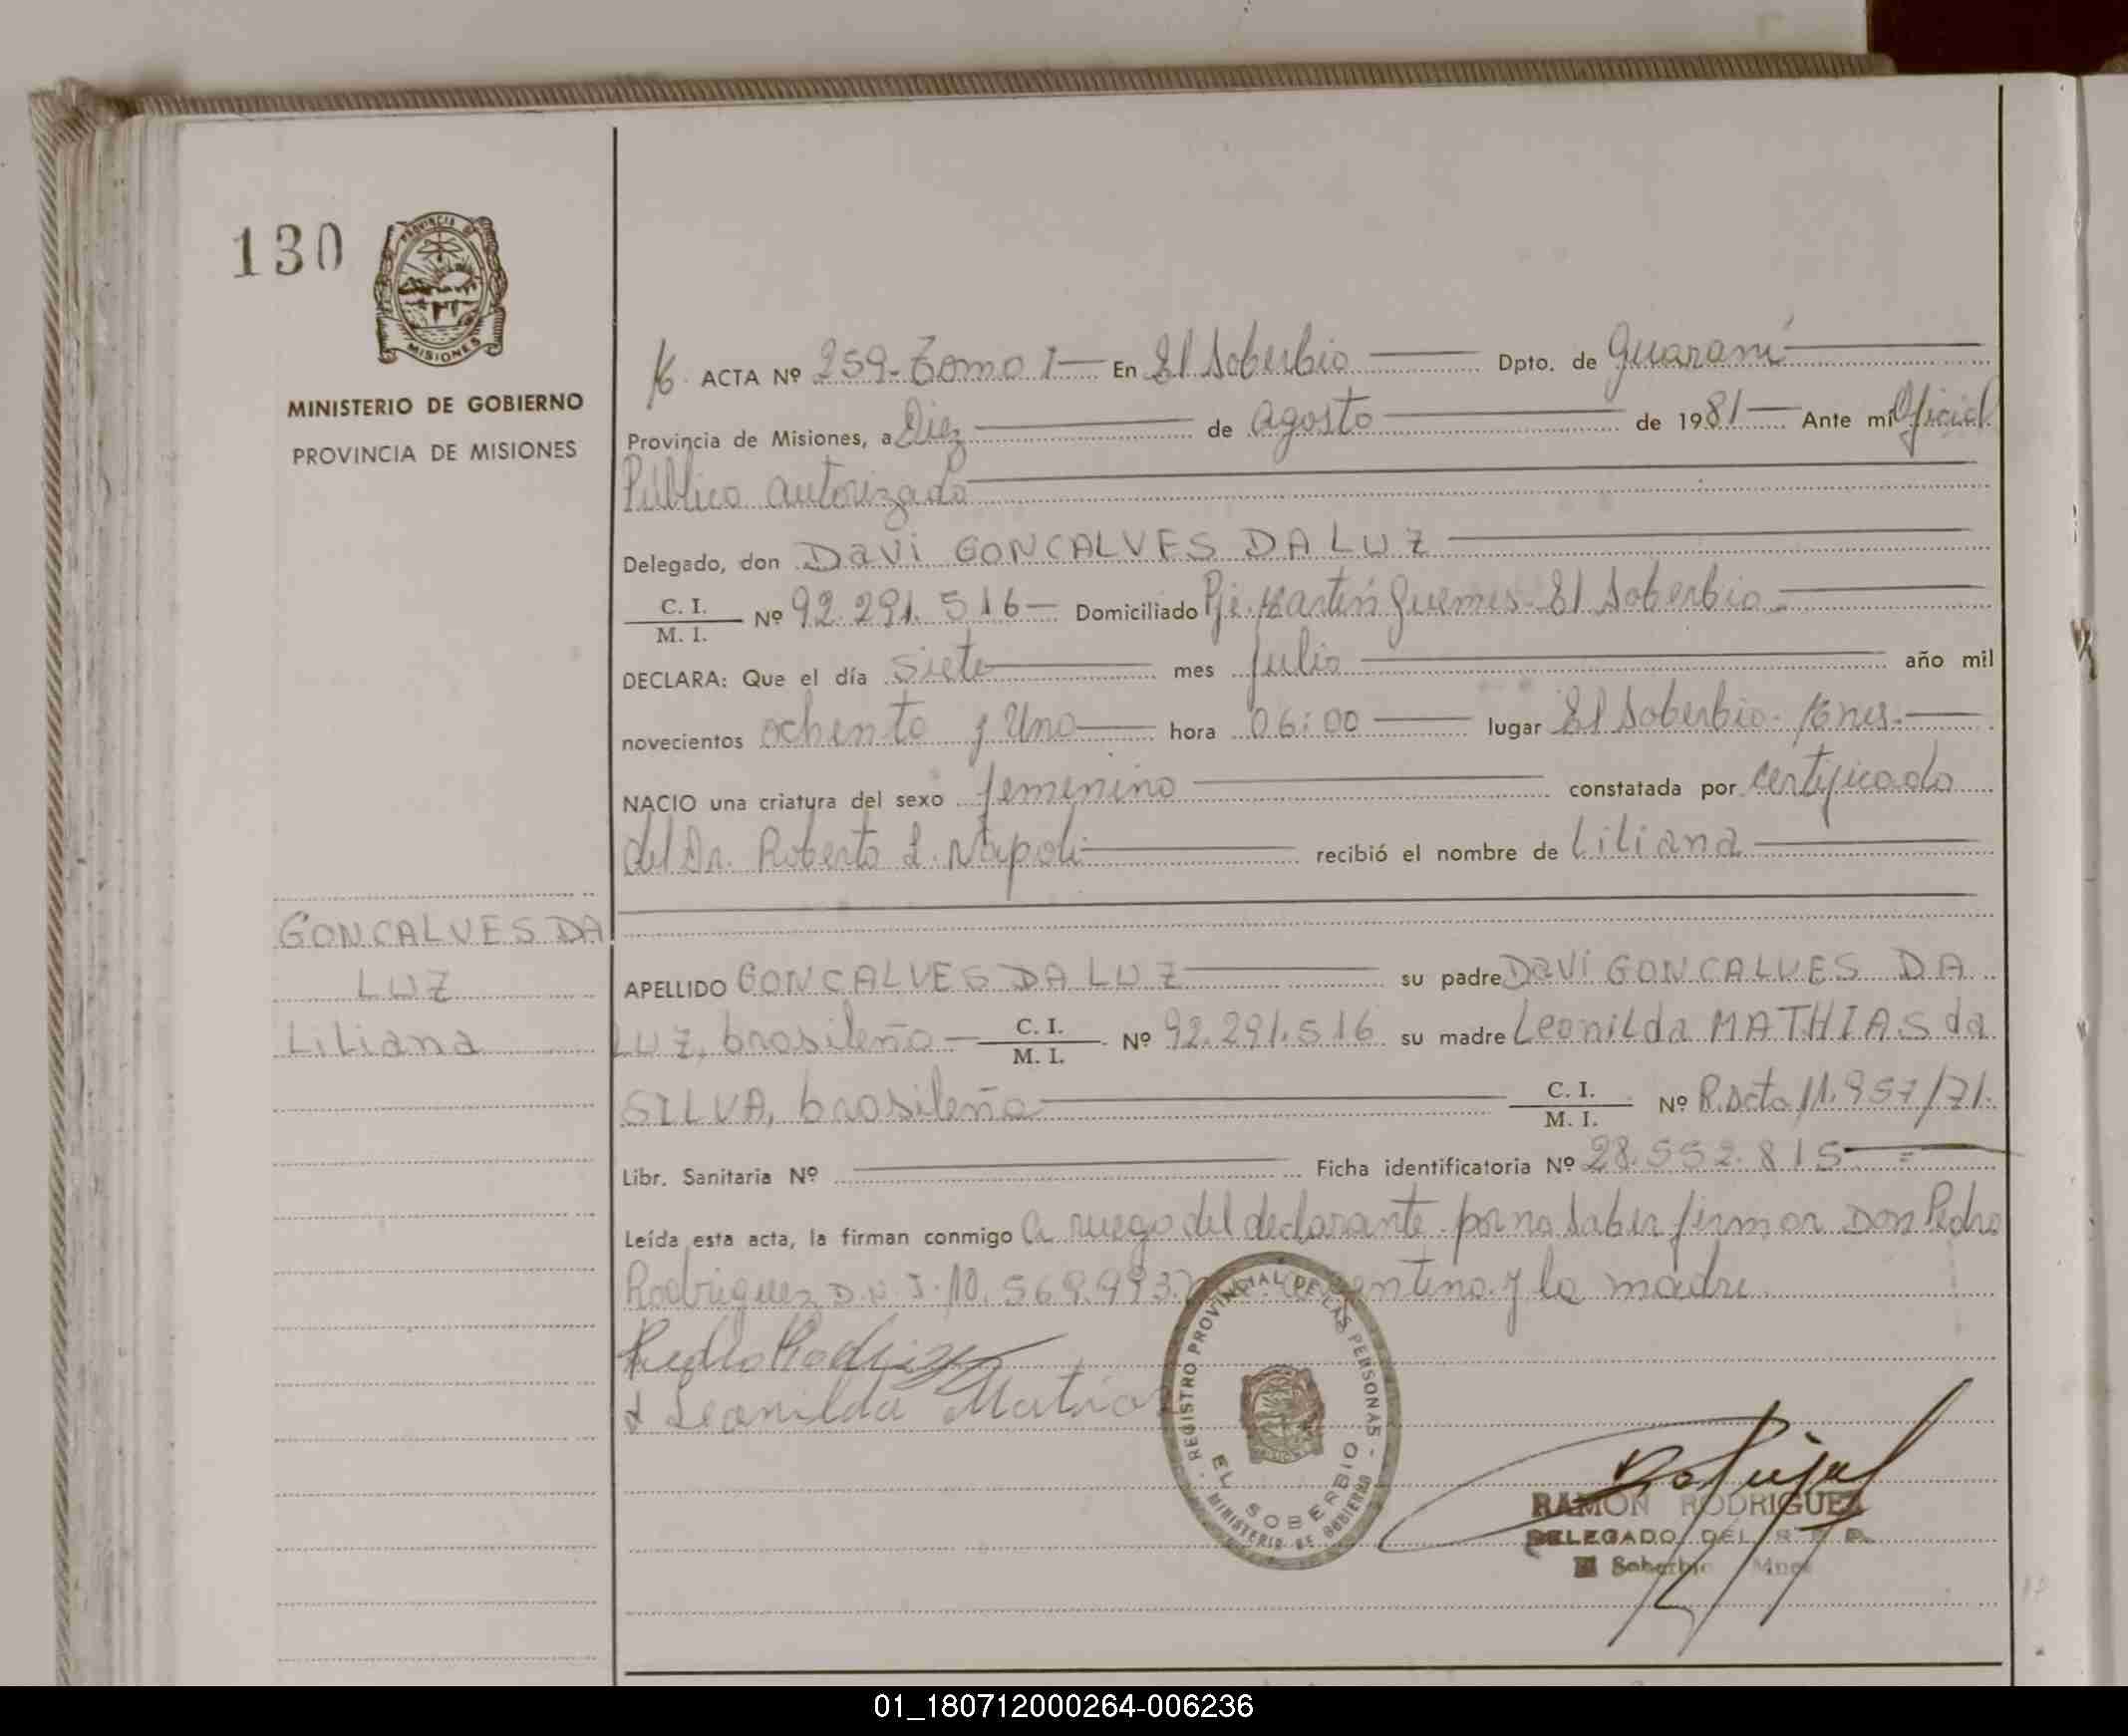 130
PROVINCIA DE
MISIONES
MINISTERIO DE GOBIERNO
PROVINCIA DE MISIONES
GONCALVES DA
LUZ
Liliana
ACTA Nº 259-Tomo I En El Soberbio Dpto. de Guaraní
Provincia de Misiones, a Diez de Agosto de 1981 Ante mí Oficial
Público autorizado
Delegado, don Davi GONCALVES DA LUZ
C. I.
M. I. Nº 92.291.516 Domiciliado Pje. Martín Guemes-El Soberbio
DECLARA: Que el día siete mes Julio año mil
novecientos ochenta y Uno hora 06:00 lugar El Soberbio-Mnes.
NACIO una criatura del sexo femenino constatada por certificado
del Dr. Roberto L. Nápoli recibió el nombre de Liliana
APELLIDO GONCALVES DA LUZ su padre Davi GONCALVES DA
LUZ, brasileño C. I.
M. I. Nº 92.291.516 su madre Leonilda MATHIAS da
SILVA, brasileña C. I.
M. I. Nº R.Dcto 11.957/71.
Libr. Sanitaria Nº Ficha identificatoria Nº 28.552.815
Leída esta acta, la firman conmigo a ruego del declarante por no saber firmar Don Pedro
Rodriguez D.N.I. 10.569.993 y la madre
Pedro Rodriguez
Leonilda Matias
REGISTRO PROVINCIAL DE LAS PERSONAS
EL SOBERBIO
MINISTERIO DE GOBIERNO
RAMON RODRIGUEZ
DELEGADO DEL R. P. P.
El Soberbio Mnes
01_180712000264-006236